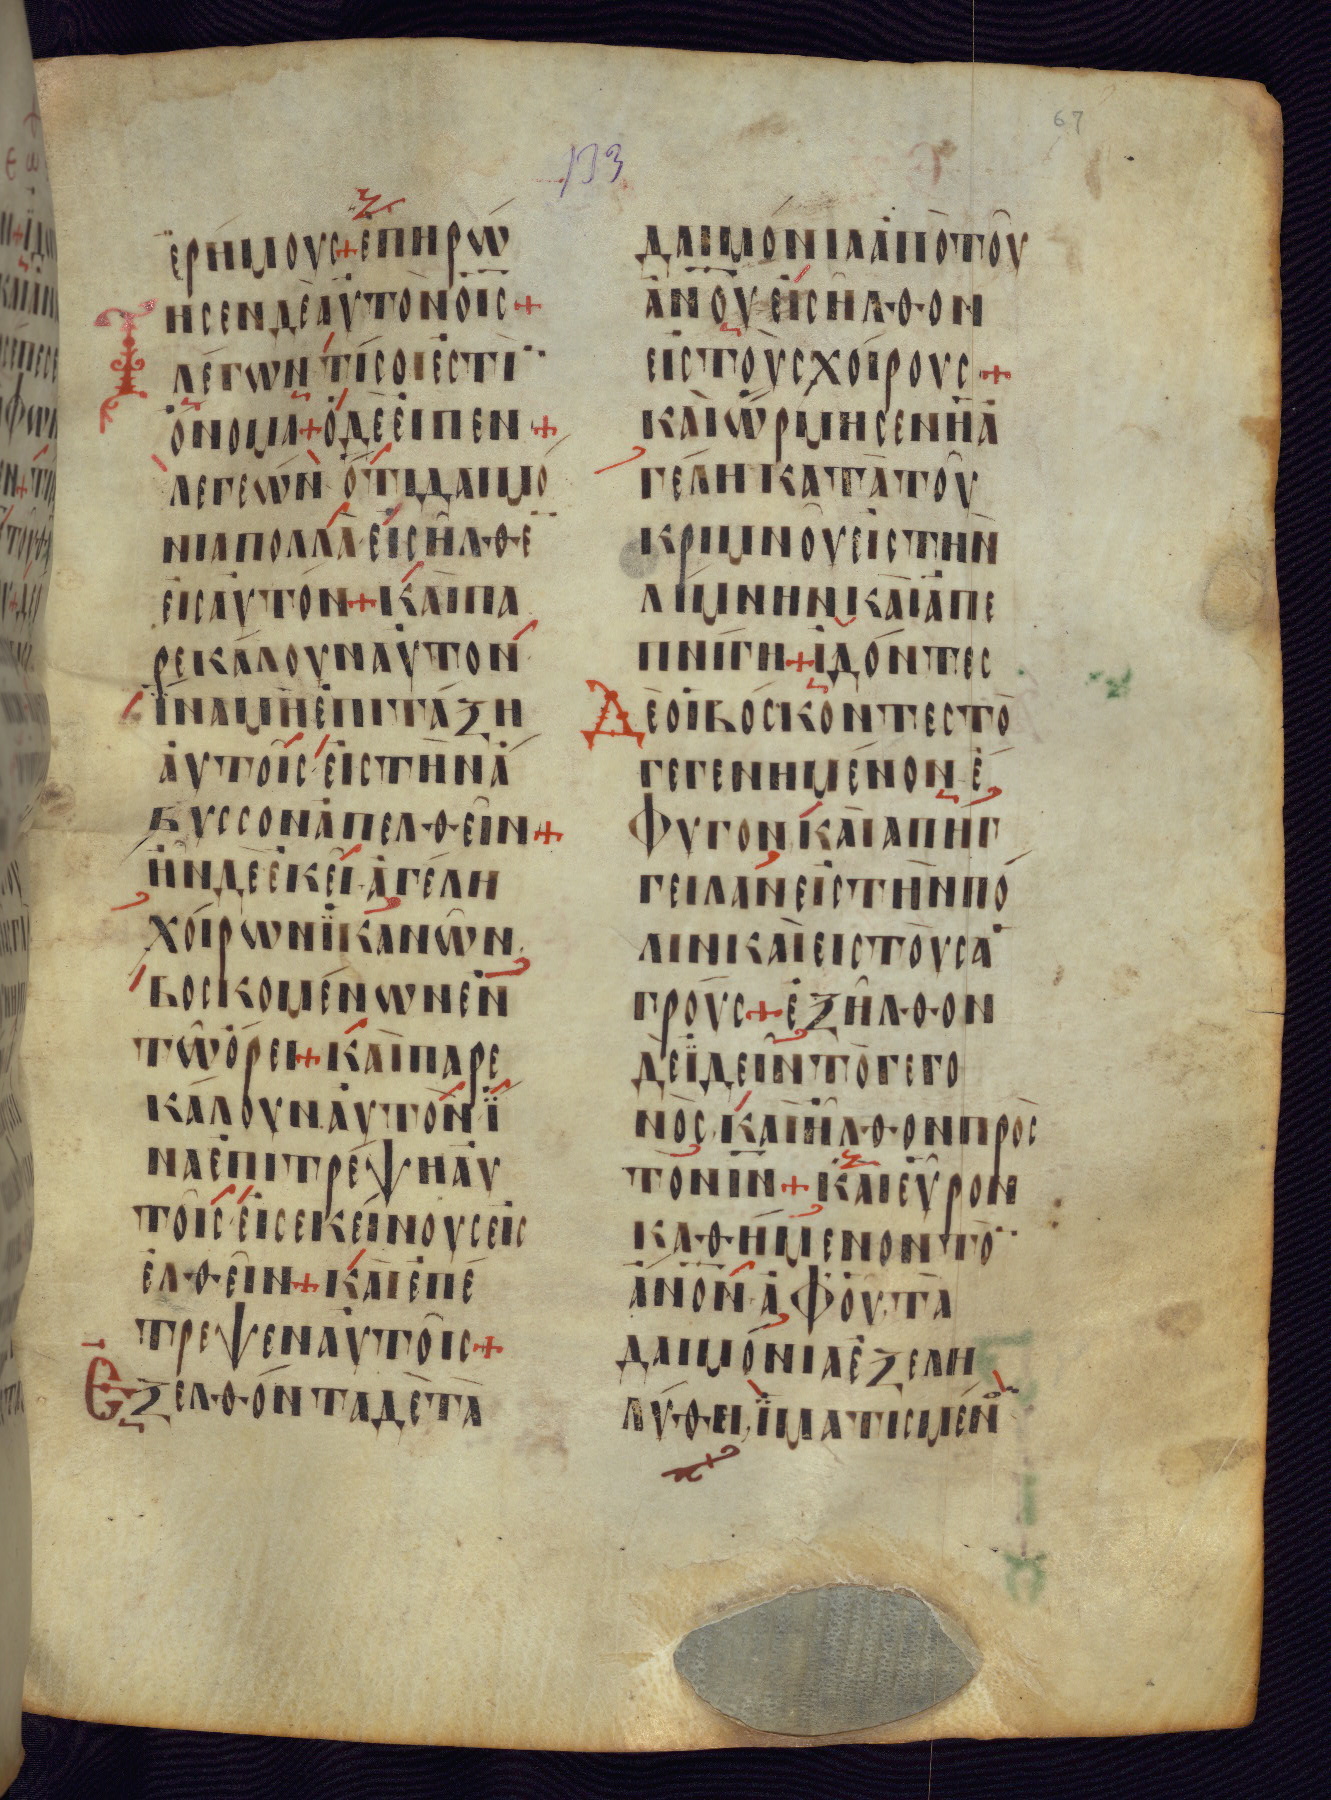 67
133
ἐρήμους + ἐπηρώ
τησεν δὲ ἀυτὸν ὁ ῙC +
λέγων τί σοι ἐστὶ
ὄνομα + ὁ δὲ εἶπεν +
λεγεὼν ὅτι δαιμό
νια πολλὰ εἰσῆλθε
εἰς ἀυτόν + καὶ πα
ρεκάλουν ἀυτὸν
ἵνα μὴ ἐπιτάξη
ἀυτοῖς εἰς τὴν ἄ
βυσσον ἀπελθεῖν +
ἦν δὲ ἐκεῖ ἀγέλη
χοίρων ἱκανῶν
βοσκομένων ἐν
τῶ ὄρει + καὶ παρε
κάλουν ἀυτὸν ἵ
να ἐπιτρέψη ἀυ
τοῖς εἰς ἐκείνους εἰς
ἐλθεῖν + καὶ ἐπέ
τρεψεν ἀυτοῖς +
Ἐξελθόντα δὲ τὰ
δαιμόνια ἀπὸ τοῦ
ἀνου εἰσῆλθον
εἰς τοὺς χοίρους +
καὶ ὥρμησεν ἡ ἀ
γέλη κατὰ τοῦ
κριμνοῦ εἰς τὴν
λίμνην καὶ ἀπε
πνίγη + ἰδόντες
Δὲ οἱ βόσκοντες τὸ
γεγενημένον ἔ
φυγον καὶ ἀπήγ
γειλαν εἰς τὴν πό
λιν καὶ εἰς τοὺς ἀ
γρούς + ἐξῆλθον
δὲ ἰδεῖν τὸ γεγο
νὸς καὶ ἦλθον πρὸς
τὸν ῙΝ + καὶ εὗρον
καθήμενον τὸ
ἀνον ἀφ οὗ τὰ
δαιμόνια ἐξελη
λύθει, ἱματισμέν